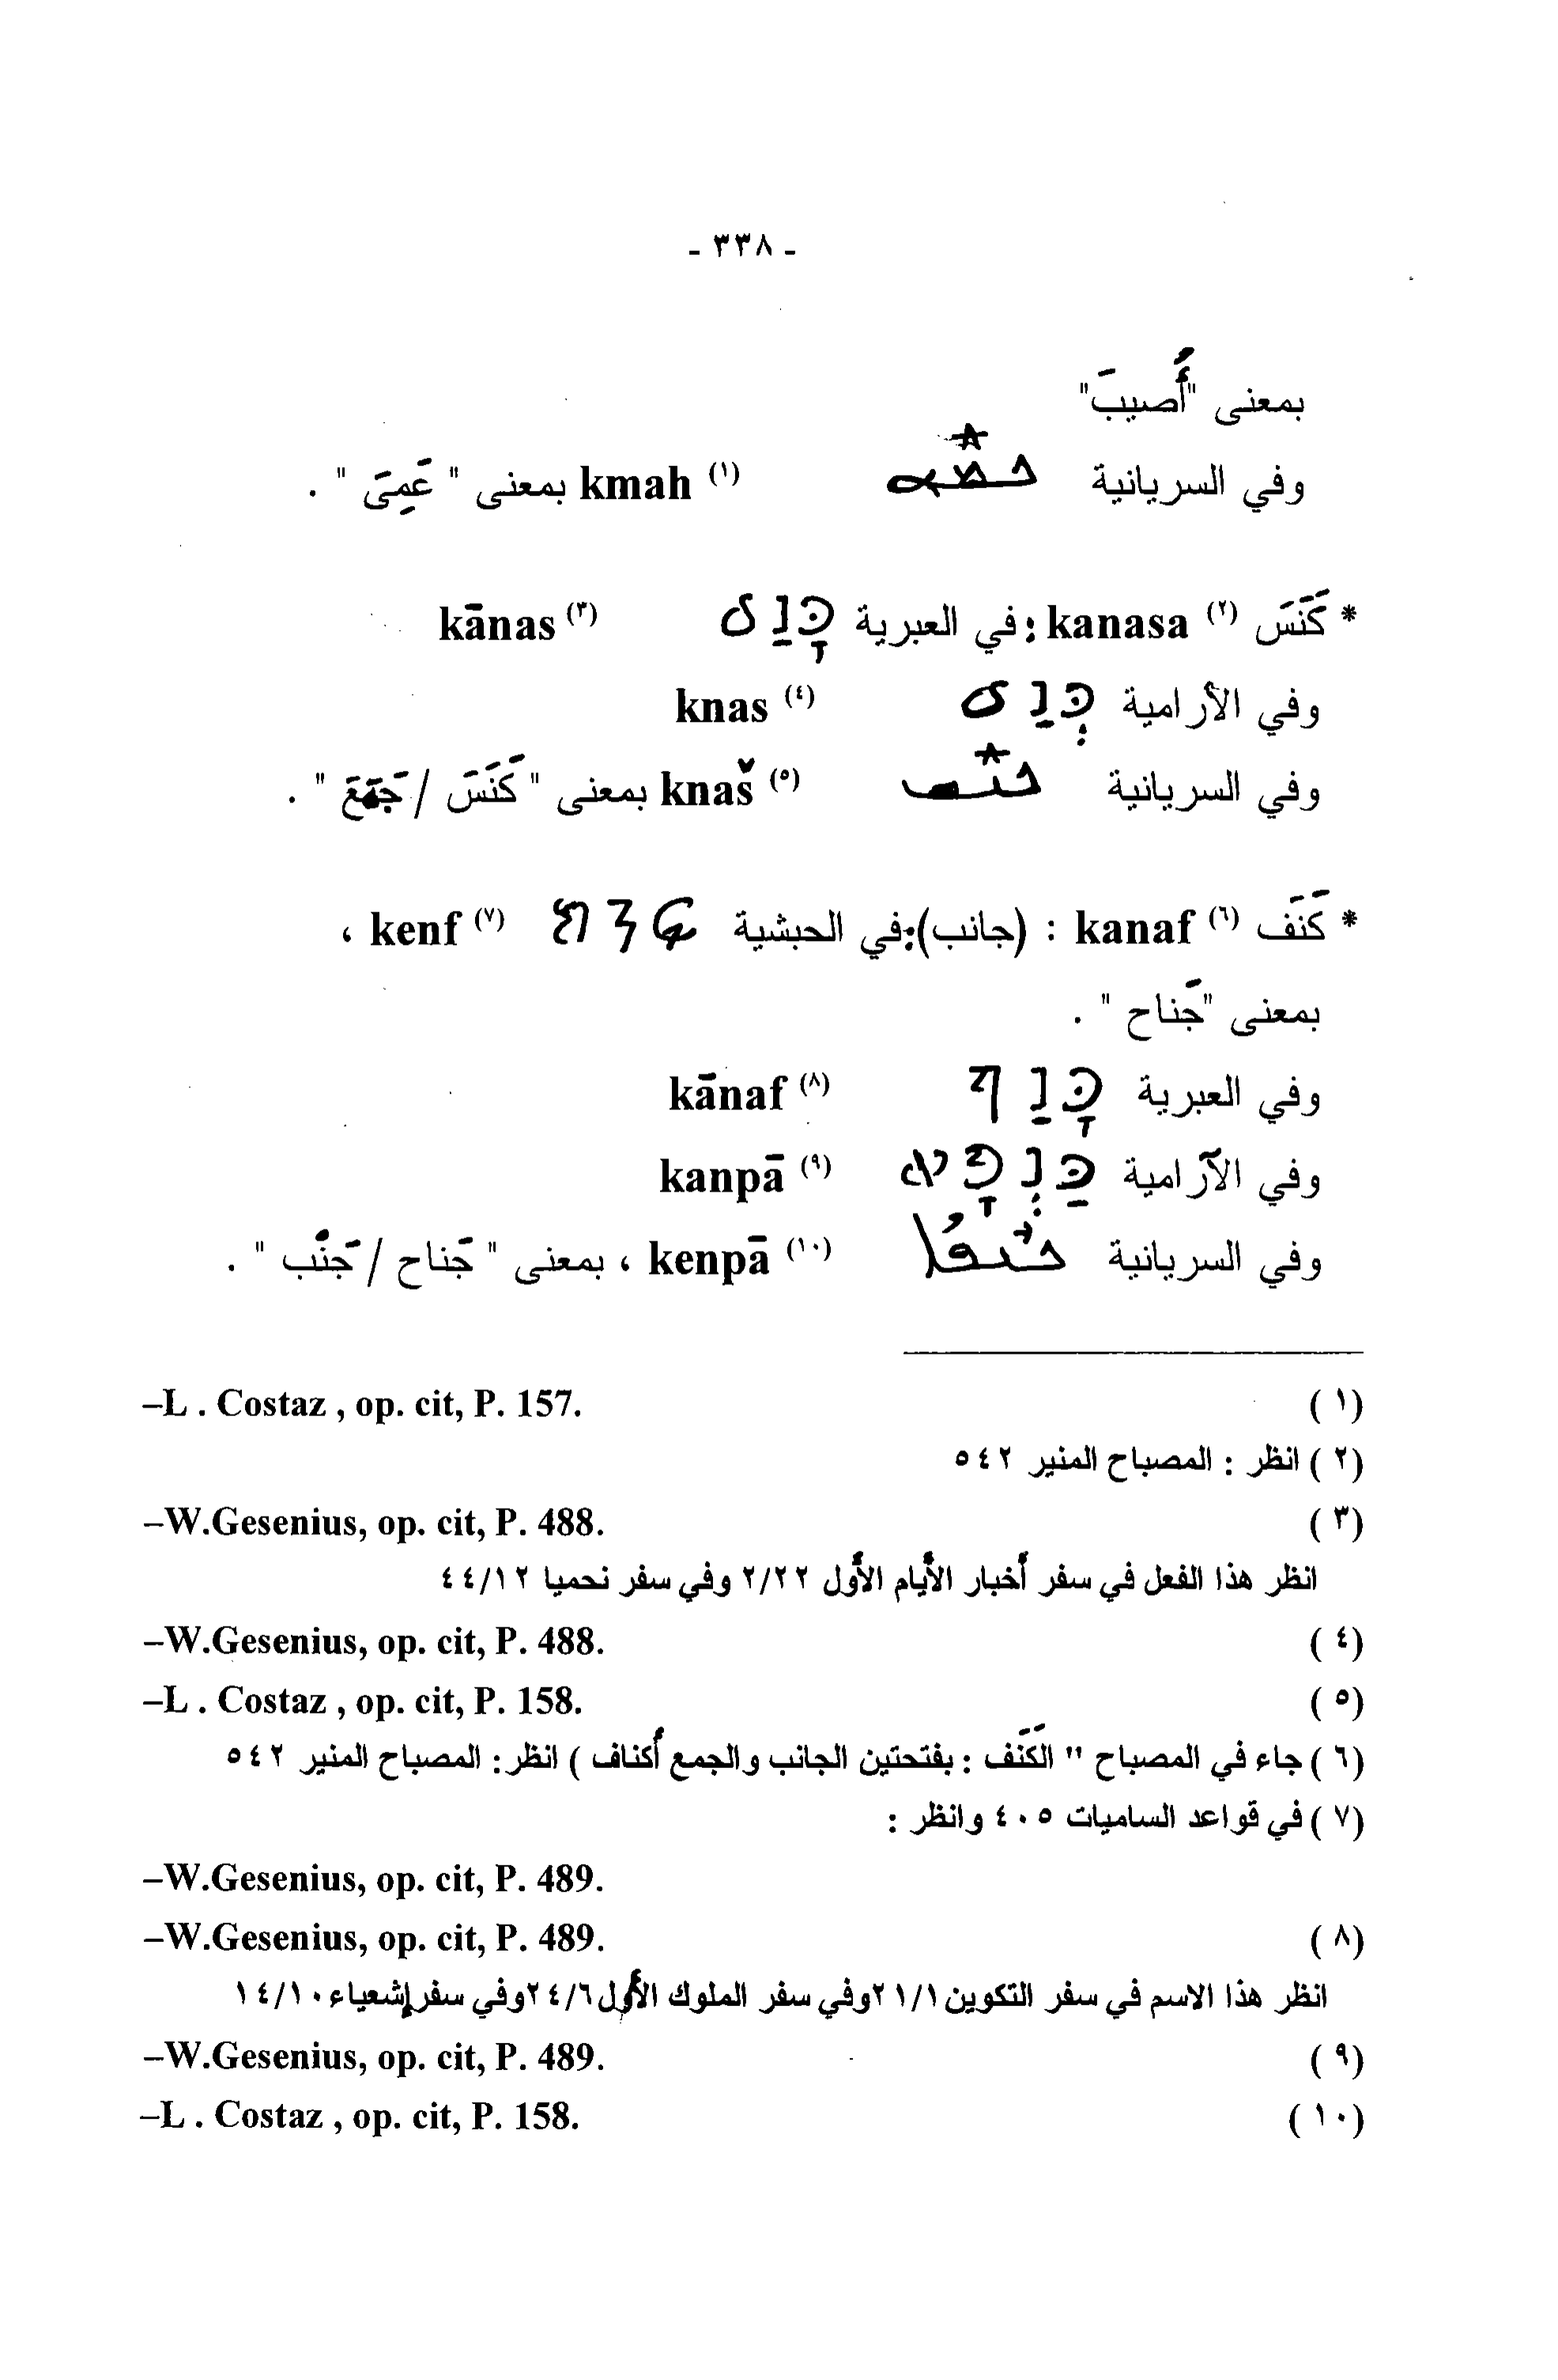 - ٣٣٨ -
بمعنى "أُصيبَ"
وفي السريانية ܟܡܗ kmah (١) بمعنى " عَمِيَ " .
* كَنَسَ (٢) kanasa : في العبرية כָּנַס kānas (٣)
وفي الأرامية כְּנַס knas (٤)
وفي السريانية ܟܢܫ knaš (٥) بمعنى " كَنَسَ / جَمَعَ " .
* كَنَف (٦) kanaf : (جانب):في الحبشية ክንፍ kenf (٧) ،
بمعنى "جَناح " .
وفي العبرية כָּנַף kānaf (٨)
وفي الآرامية כַּנְפָּא kanpā (٩)
وفي السريانية ܟܢܦܐ kenpā (١٠) ، بمعنى " جَناح / جَنْب " .
(١) –L . Costaz , op. cit, P. 157.
(٢) انظر : المصباح المنير ٥٤٢
(٣) –W.Gesenius, op. cit, P. 488.
انظر هذا الفعل في سفر أخبار الأيام الأول ٢/٢٢ وفي سفر نحميا ٤٤/١٢
(٤) –W.Gesenius, op. cit, P. 488.
(٥) –L . Costaz , op. cit, P. 158.
(٦) جاء في المصباح " الكَنَف : بفتحتين الجانب والجمع أكناف ) انظر: المصباح المنير ٥٤٢
(٧) في قواعد الساميات ٤٠٥ وانظر :
–W.Gesenius, op. cit, P. 489.
(٨) –W.Gesenius, op. cit, P. 489.
انظر هذا الاسم في سفر التكوين ٢١/١ وفي سفر الملوك الأول ٢٤/٦ وفي سفر إشعياء ١٤/١٠
(٩) –W.Gesenius, op. cit, P. 489.
(١٠) –L . Costaz , op. cit, P. 158.